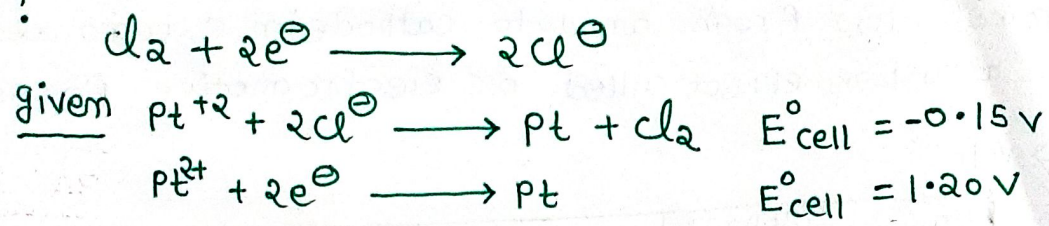 Cl2 + 2e⊖ ⟶ 2Cl⊖
given Pt+2 + 2Cl⊖ ⟶ Pt + Cl2 E°cell = -0.15 V
Pt2+ + 2e⊖ ⟶ Pt E°cell = 1.20 V